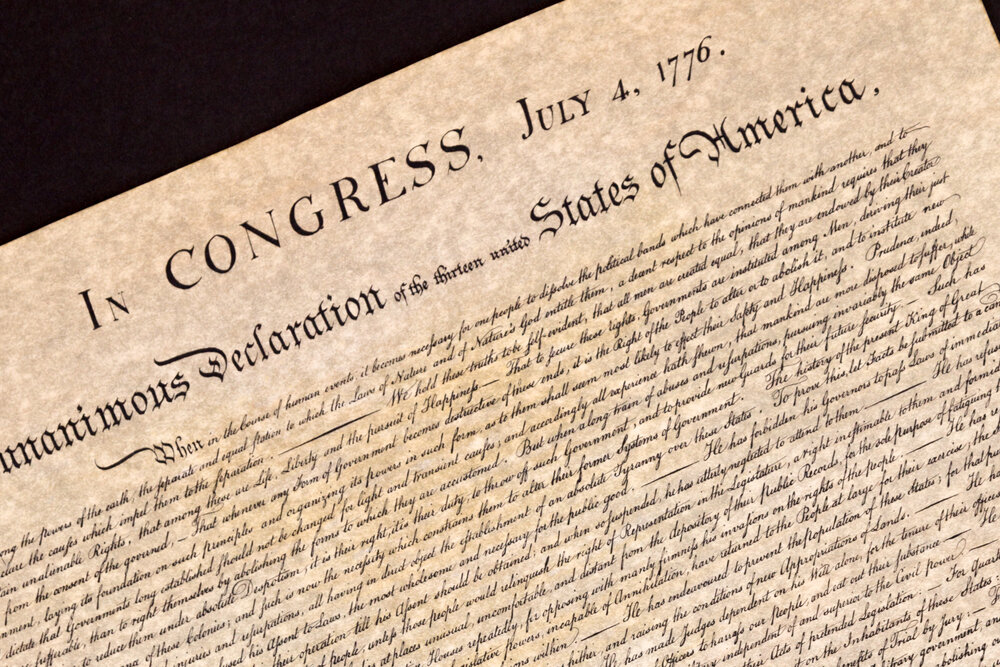 In CONGRESS, July 4, 1776.
unanimous Declaration of the thirteen united States of America,
When in the Course of human events, it becomes necessary for one people to dissolve the political bands which have connected them with another, and to
ong the powers of the earth, the separate and equal station to which the Laws of Nature and of Nature's God entitle them, a decent respect to the opinions of mankind requires that they
the causes which impel them to the separation. — We hold these truths to be self-evident, that all men are created equal, that they are endowed by their Creator
unalienable Rights, that among these are Life, Liberty and the pursuit of Happiness. — That to secure these rights, Governments are instituted among Men, deriving their just
from the consent of the governed, — That whenever any Form of Government becomes destructive of these ends, it is the Right of the People to alter or to abolish it, and to institute new
nment, laying its foundation on such principles and organizing its powers in such form, as to them shall seem most likely to effect their Safety and Happiness. Prudence, indeed,
dictate that Governments long established should not be changed for light and transient causes; and accordingly all experience hath shewn, that mankind are more disposed to suffer, while
sufferable, than to right themselves by abolishing the forms to which they are accustomed. But when a long train of abuses and usurpations, pursuing invariably the same Object
to reduce them under absolute Despotism, it is their right, it is their duty, to throw off such Government, and to provide new Guards for their future security. — Such has
of these Colonies; and such is now the necessity which constrains them to alter their former Systems of Government. The history of the present King of Great
injuries and usurpations, all having in direct object the establishment of an absolute Tyranny over these States. To prove this, let Facts be submitted to a can
his Assent to Laws, the most wholesome and necessary for the public good. — He has forbidden his Governors to pass Laws of immedia
operation till his Assent should be obtained; and when so suspended, he has utterly neglected to attend to them. — He has refused
of people, unless those people would relinquish the right of Representation in the Legislature, a right inestimable to them and formid
at places unusual, uncomfortable, and distant from the depository of their public Records, for the sole purpose of fatiguing
Houses repeatedly, for opposing with manly firmness his invasions on the rights of the people. — He has r
powers, incapable of Annihilation, have returned to the People at large for their exercise; the
within. — He has endeavoured to prevent the population of these States; for that pur
hither, and raising the conditions of new Appropriations of Lands. — He h
has made Judges dependent on his Will alone, for the tenure of their offices
Officers to harrass our people, and eat out their substance. — He
independent of and superior to the Civil power.
Acts of pretended Legislation: — For Qua
Inhabitants of these States
of Trial by Jury: —